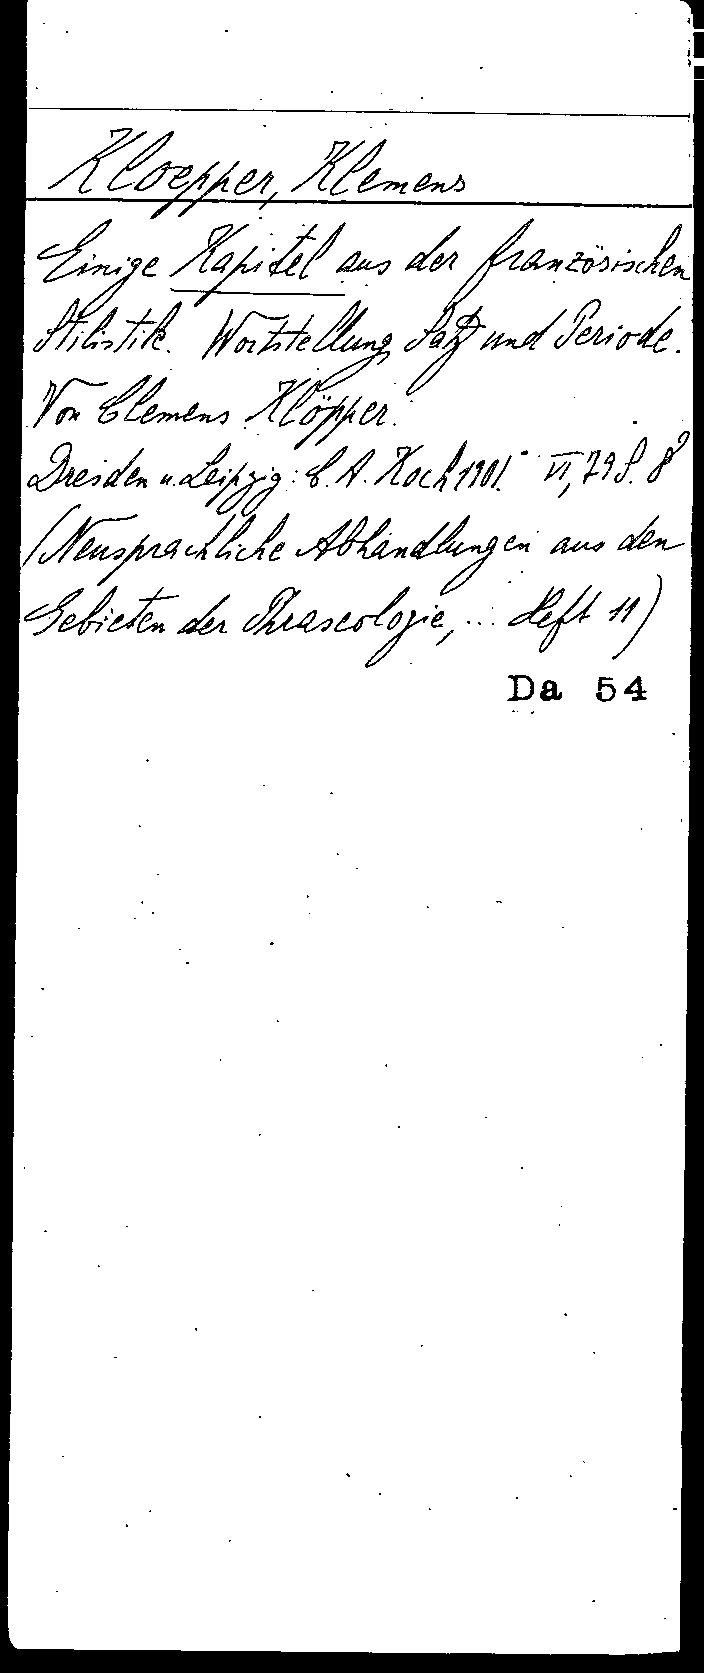 Kloepper, Klemens
Einige Kapitel aus der französischen
Stilistik. Wortstellung, Satz und Periode.
Von Clemens Klöpper.
Dresden u. Leipzig: C. A. Koch 1901. VI, 79 S. 8°
(Neusprachliche Abhandlungen aus den
Gebieten der Phraseologie, ... Heft 11)
Da 54